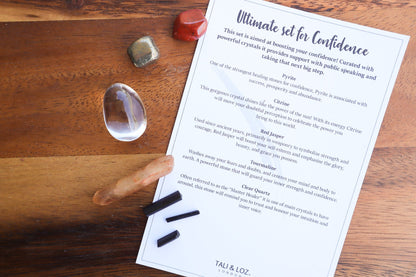 Ultimate set for Confidence
This set is aimed at boosting your confidence! Curated with
powerful crystals it provides support with public speaking and
taking that next big step.
Pyrite
One of the strongest healing stones for confidence, Pyrite is associated with
success, prosperity and abundance.
Citrine
This gorgeous crystal shines the power of the sun! With its energy Citrine
will move your doubtful perception to celebrate the power you
bring to this world!
Red Jasper
Used since ancient years, primarily in weaponry to symbolise strength and
courage, Red Jasper will boost your self-esteem and emphasise the glory,
beauty, and grace you possess.
Tourmaline
Washes away your fears and doubts, and centers your mind and body to
earth. A powerful stone that will guard your inner strength and confidence.
Clear Quartz
Often referred to as the "Master Healer" it is one of main crystals to have
around, this stone will remind you to treat and honour your intuition and
inner voice.
TALI & LOZ.
LONDON